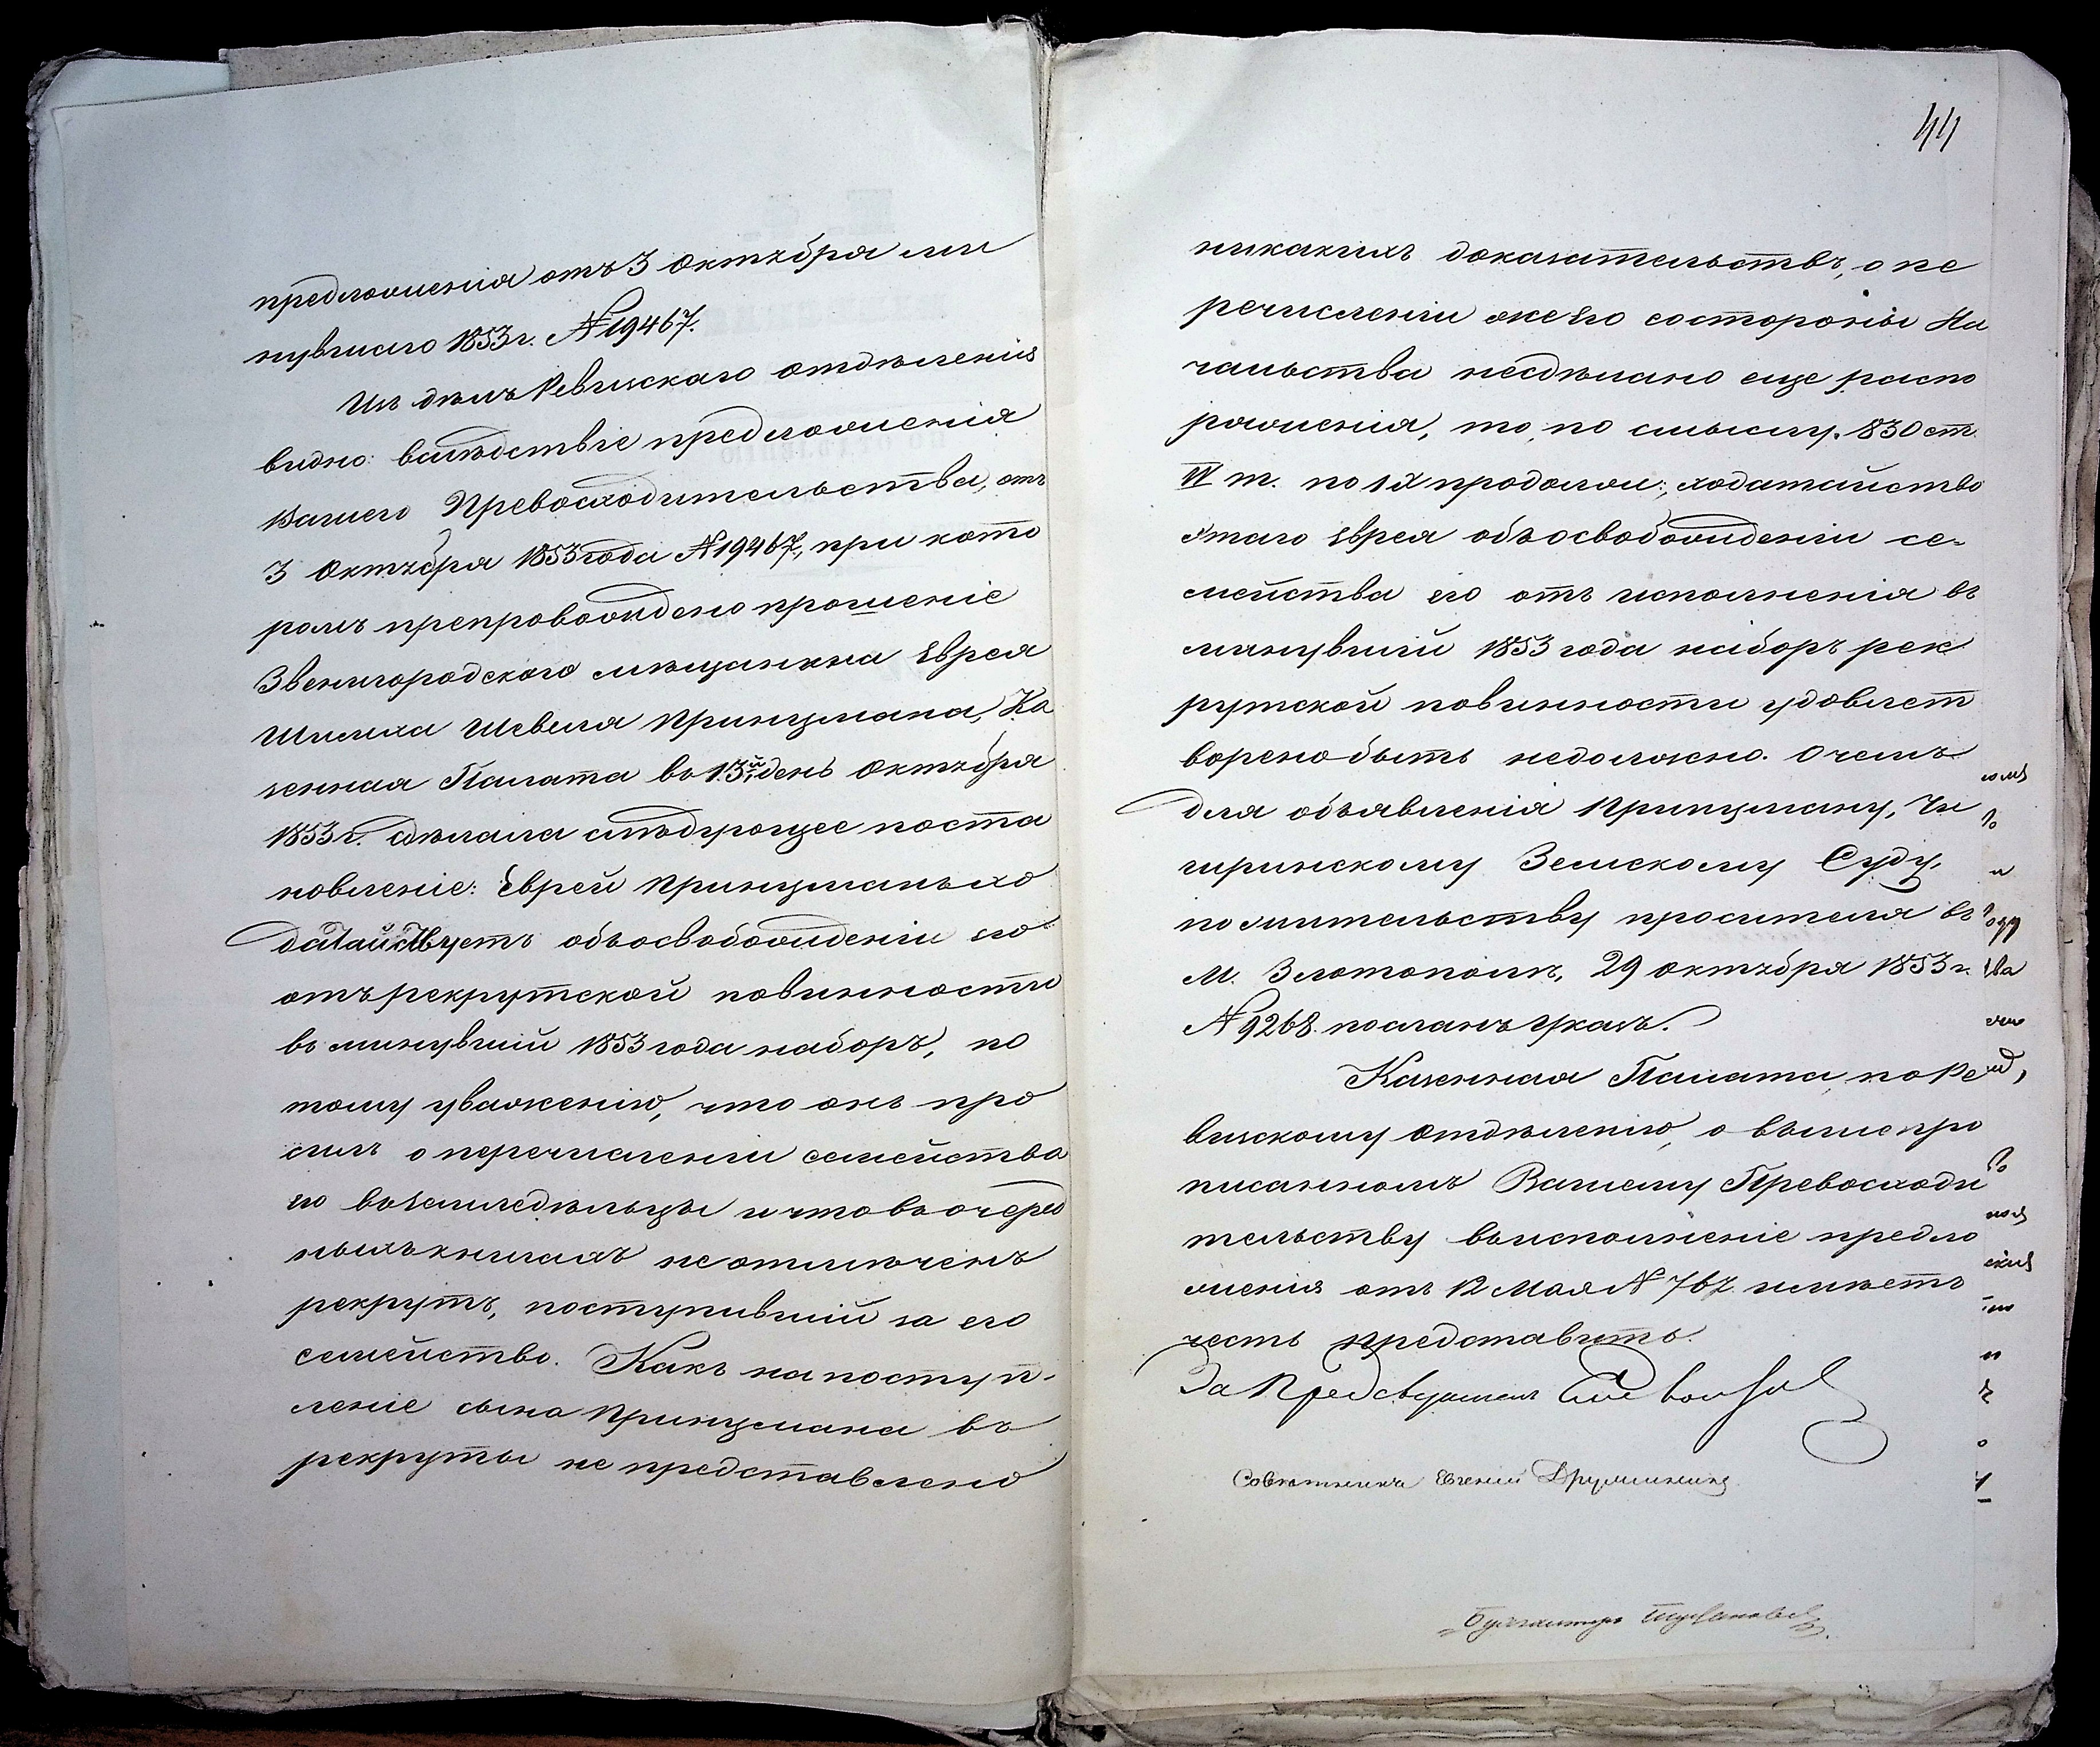 предложенія отъ 3 Октября ми
нувшаго 1853 г. № 19467.
Изъ дѣлъ Ревизскаго Отдѣленія
видно: вслѣдствіе предложенія
Вашего Превосходительства, отъ
3 Октября 1853 года № 19467, при кото
ромъ препровождено прошеніе
Звенигородского мѣщанина Еврея
Шмиля Шевеля Принцмана, Ка
зенная Палата во 13й день Октября
1853 г. сдѣлала слѣдующее поста
новленіе: Еврей Принцманъ хо
датайствуетъ объ освобожденіи его
отъ рекрутской повинности
въ минувшій 1853 года наборъ, по
тому уваженію, что онъ про
силъ о перечисленіи семейства
его въ земледѣльцы и что въ очеред
ныхъ книгахъ не отмѣченъ
рекрутъ, поступившій за его
семейство. Какъ на поступ-
леніе сына Принцмана въ
рекруты не представлено
44
никакихъ доказательствъ, о пе
речисленіи же его со стороны На
чальства несдѣлано еще распо
ряженія, то, по смыслу 830 ст.
IV т. по IX продолж:, ходатайство
этаго Еврея объ освобожденіи се-
мейства его отъ исполненія въ
минувшій 1853 года наборъ рек
рутской повинности удовлет
ворено быть недолжно. О чемъ
для объявленія Принцману, Чи
гиринскому Земскому Суду,
по жительству просителя въ
М. Златополѣ, 29 Октября 1853 г.
№ 9268. посланъ указъ.
Казенная Палата, по Ре
визскому Отдѣленію, о выше про
писанномъ Вашему Превосходи
тельству во исполненіе предло
женія отъ 12 Мая № 767. имѣетъ
честь представить.
За Предсѣдателя
Совѣтникъ Евгеній Дружининъ
Бухгалтеръ